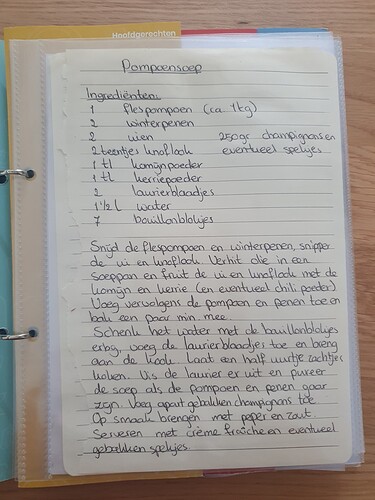 Hoofdgerechten
Pompoensoep
Ingrediënten:
1 flespompoen (ca. 1kg)
2 winterpenen
2 uien 250gr champignons en
2 teentjes knoflook eventueel spekjes
1 tl komijnpoeder
1 tl kerriepoeder
2 laurierblaadjes
1½ l water
7 bouillonblokjes
Snijd de flespompoen en winterpenen, snipper
de ui en knoflook. Verhit olie in een
soeppan en fruit de ui en knoflook met de
komijn en kerrie (en eventueel chili poeder)
Voeg vervolgens de pompoen en penen toe en
bak een paar min. mee.
Schenk het water met de bouillonblokjes
erbij, voeg de laurierblaadjes toe en breng
aan de kook. Laat een half uurtje zachtjes
koken. Vis de laurier er uit en pureer
de soep als de pompoen en penen gaar
zijn. Voeg apart gebakken champignons toe
Op smaak brengen met peper en zout.
Serveren met crème fraîche en eventueel
gebakken spekjes.